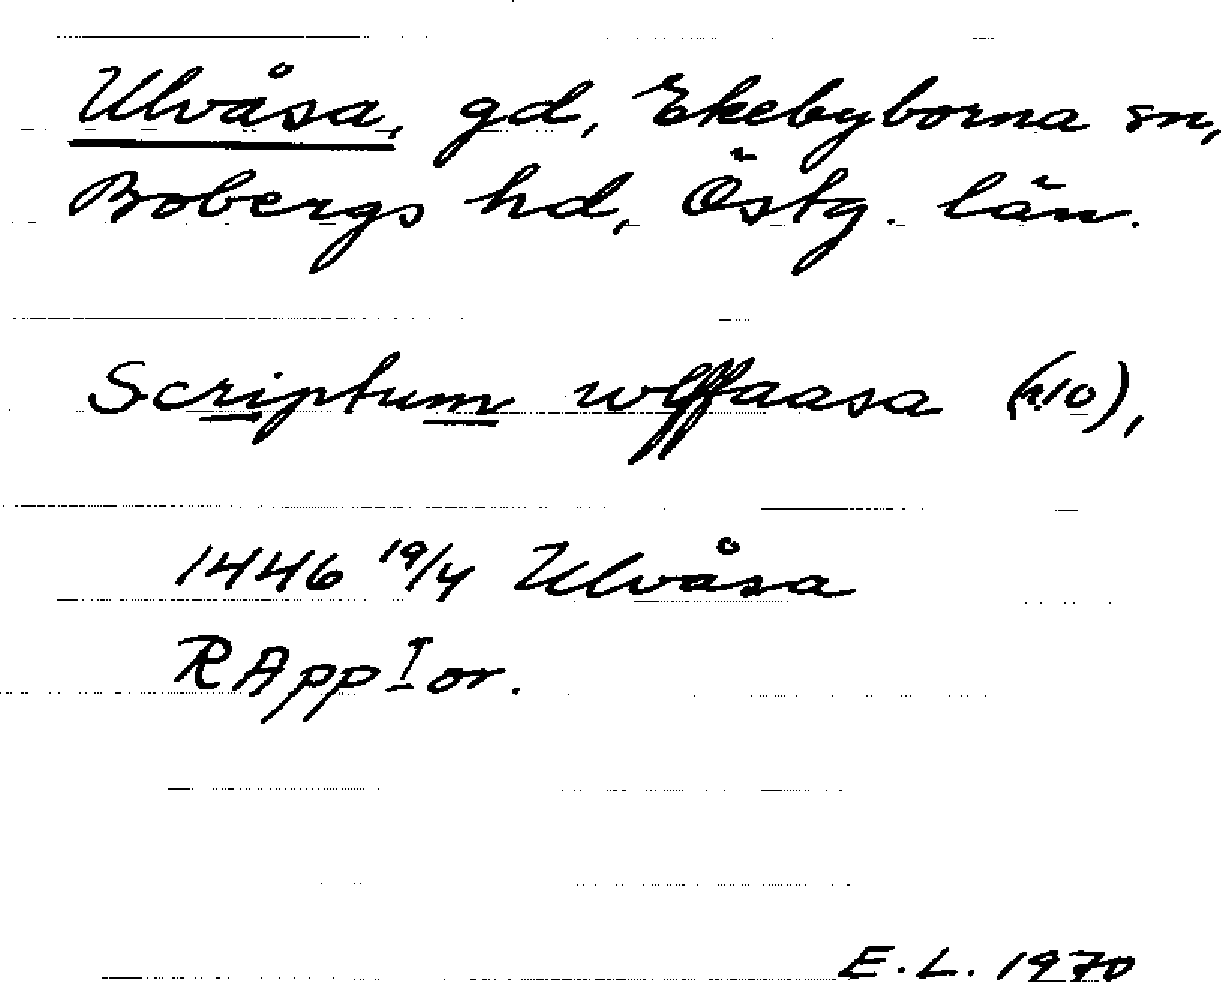 Ulvåsa, gd, Ekebyborna sn,
Bobergs hd, Östg. län.
Scriptum wlffaasa (a10),
1446 19/4 Ulvåsa
RApp I or.
E.L. 1970